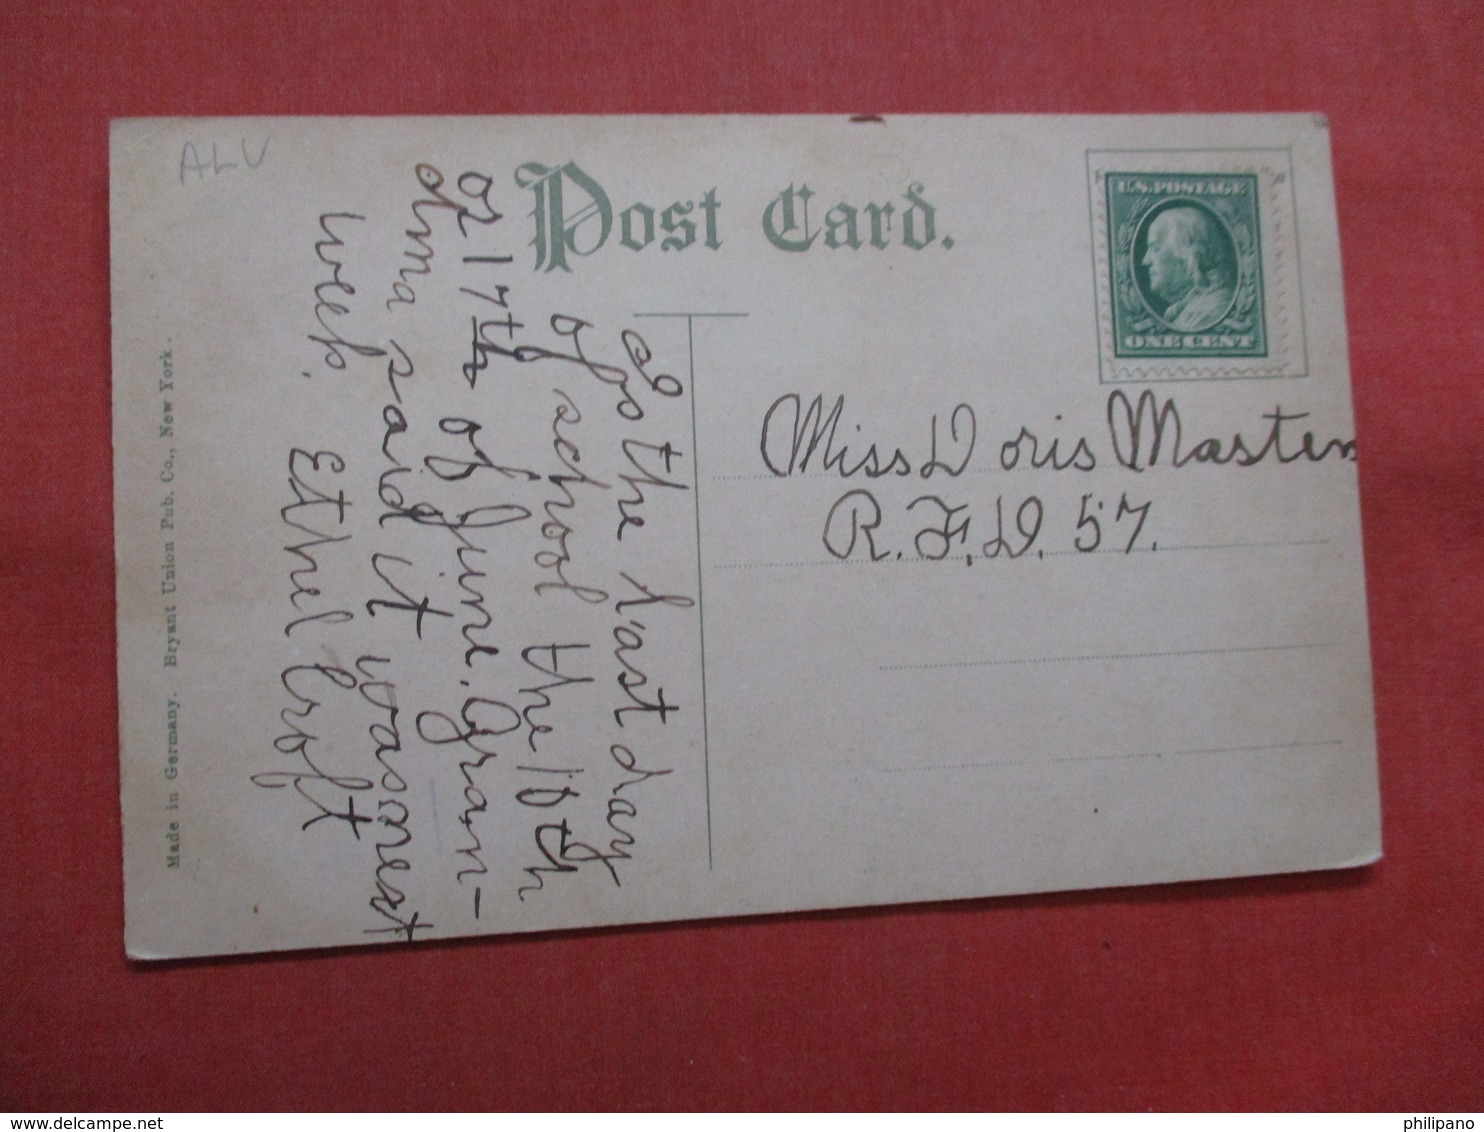 ALV
Post Card.
U.S. POSTAGE
ONE CENT
Miss Doris Masten
R.F.D. 57.
Is the last day
of school the 16th
or 17th of June. Gran-
dma said it was next
week. Ethel Croft
Made in Germany. Bryant Union Pub. Co., New York.
delcampe.net
philipano